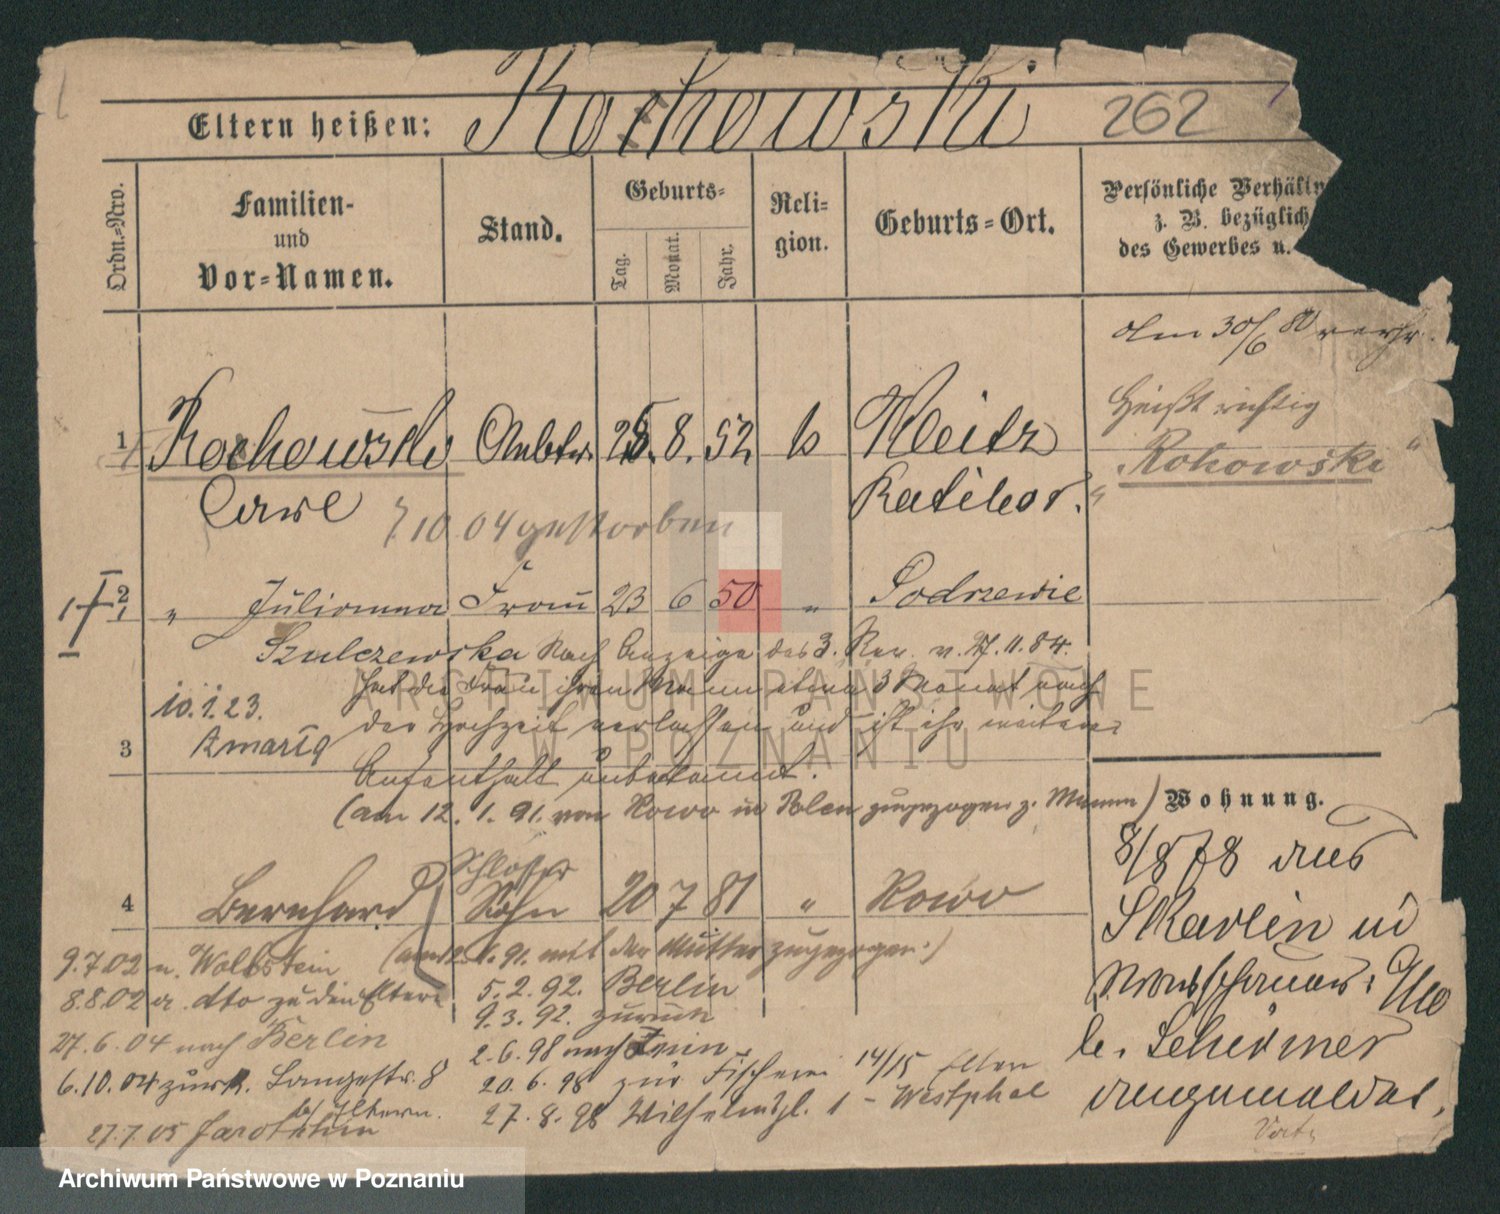 Kochowski 262
Eltern heißen:
Ordn.-Nro.
Familien-
und
Vor-Namen.
Stand.
Geburts-
Tag.
Monat.
Jahr.
Reli-
gion.
Geburts-Ort.
Persönliche
z. B. bezüglich
des Gewerbes u.
am 30/6 80
1 Kochowski 25. 8. 52 k
Heißt richtig
Rokowski
Ratibor.
7/10 04 gestorben
2 " Julianna Frau 23 6 50 " Podrzewie
Szulczewska Nach Anzeige des 3. Rev. v. 27.11.84.
hat die Frau ihren Mann etwa 3 Monat nach
10.1.23. der Hochzeit verlassen und ist ihr weiterer
zmarła
3
Aufenthalt unbekannt.
(am 12. 1. 91. von Rowo in Polen zugezogen z. Mann)
Wohnung.
8/8 78 aus
Schlosser
4 Bernhard Sohn 20 7 81 " Rowo
(am 12. 1. 91. mit der Mutter zugezogen.)
9.7.02 n. Wollstein
8.8.02 v. dto zu den Eltern
5.2.92. Berlin
9.3.92. zurück
27.6.04 nach Berlin
2.6.98 nach
6.10.04 zurück. Langestr. 8
20.6.98 zur Fischerei 14/15 Eltern
b/ Eltern.
27.8.98 Wilhelmspl. 1 - Westphal
27.7.05 Jarotschin
ARCHIWUM PAŃSTWOWE
W POZNANIU
Archiwum Państwowe w Poznaniu